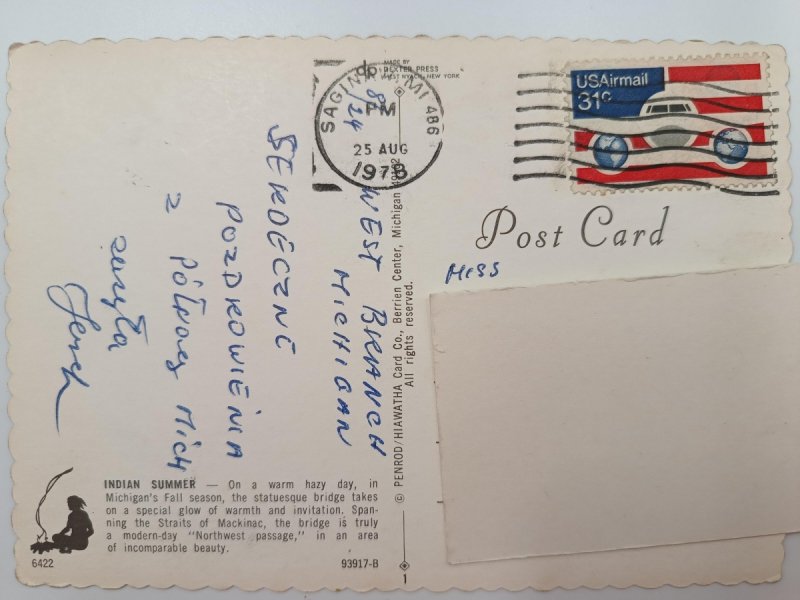 MADE BY
DEXTER PRESS
WEST NYACK, NEW YORK
SAGINAW, MI 486
PM
25 AUG
1978
USAirmail
31c
Post Card
MISS
8/24
WEST BRANCH
MICHIGAN
SERDECZNE
POZDROWIENIA
z PÓŁNOCY MICH
zasyła
© PENROD/HIAWATHA Card Co., Berrien Center, Michigan 49102
All rights reserved.
INDIAN SUMMER — On a warm hazy day, in
Michigan's Fall season, the statuesque bridge takes
on a special glow of warmth and invitation. Span-
ning the Straits of Mackinac, the bridge is truly
a modern-day "Northwest passage," in an area
of incomparable beauty.
6422
93917-B
1